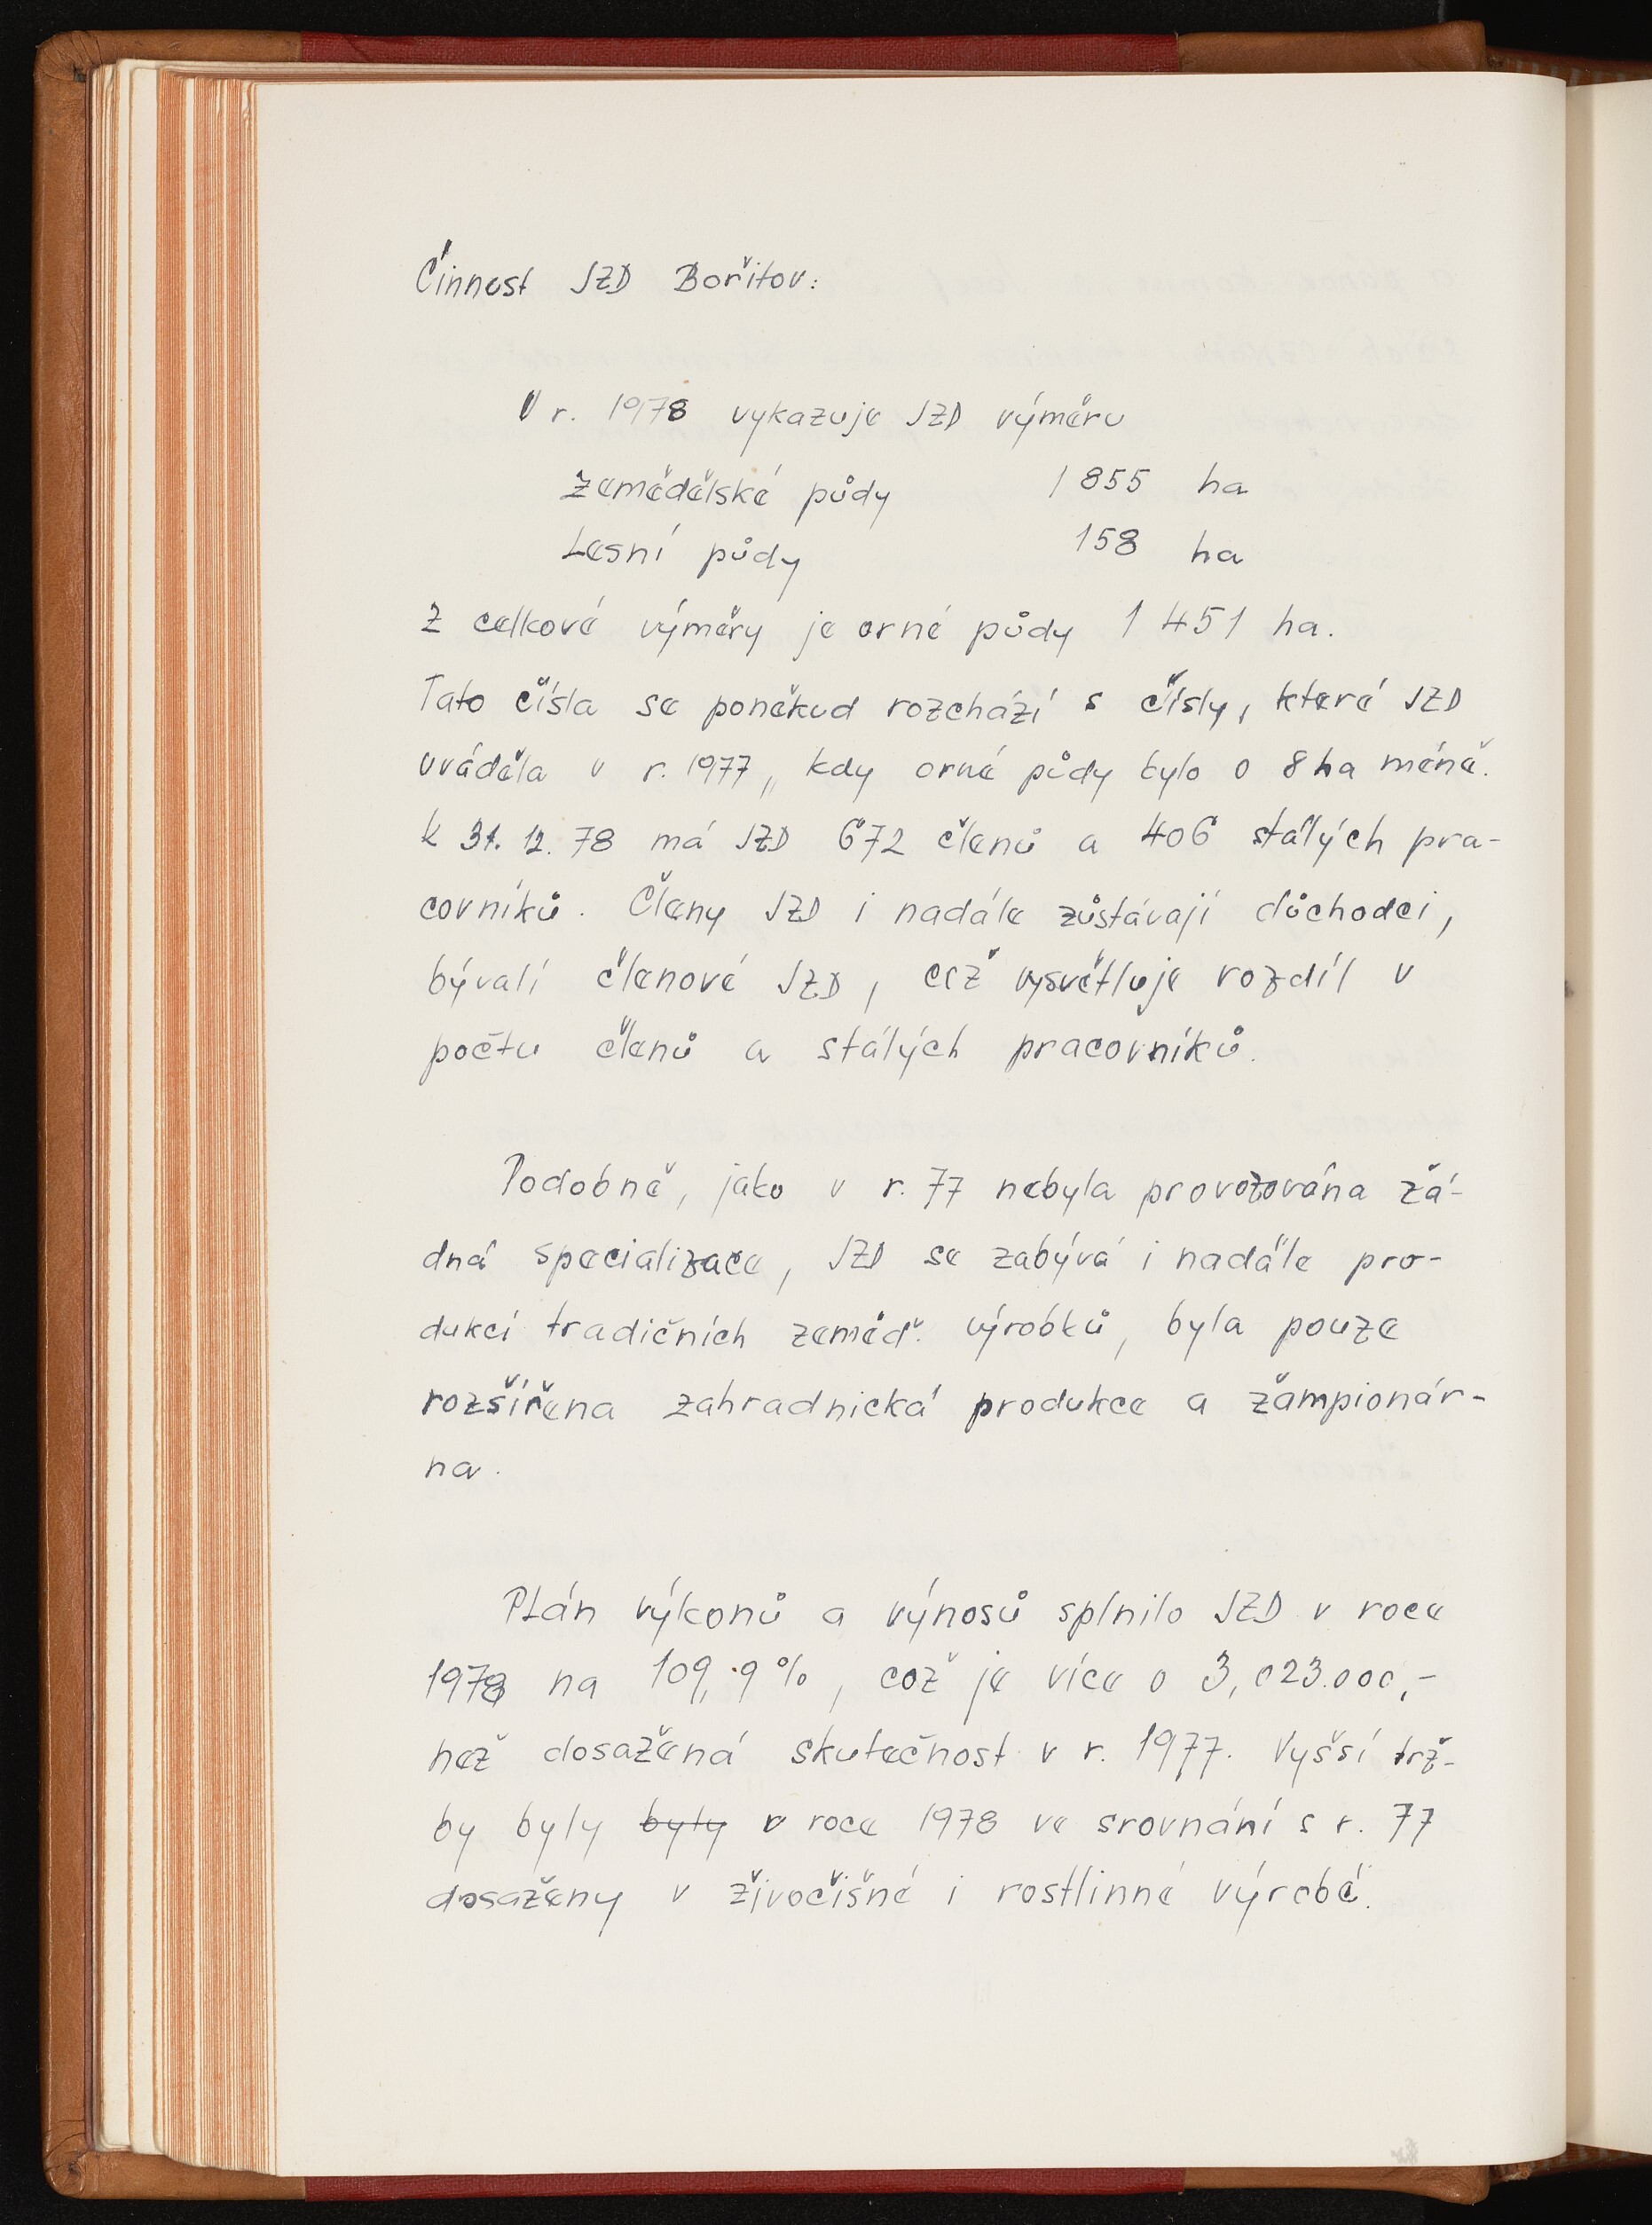 Činnost JZD Bořitov:
V r. 1978 vykazuje JZD výměru
zemědělské půdy 1 855 ha
Lesní půdy 158 ha
Z celkové výměry je orné půdy 1 451 ha.
Tato čísla se poněkud rozchází s čísly, které JZD
uváděla v r. 1977, kdy orné půdy bylo o 8 ha méně.
k 31. 12. 78 má JZD 672 členů a 406 stálých pra-
covníků. Členy JZD i nadále zůstávají důchodci,
bývalí členové JZD, což vysvětluje rozdíl v
počtu členů a stálých pracovníků.
Podobně, jako v r. 77 nebyla provozována žá-
dná specializace, JZD se zabývá i nadále pro-
dukcí tradičních zeměď. výrobků, byla pouze
rozšířena zahradnická produkce a žampionár-
na.
Plán výkonů a výnosů splnilo JZD v roce
1978 na 109,9 %, což je více o 3,023.000,-
než dosažená skutečnost v r. 1977. Vyšší trž-
by byly byly v roce 1978 ve srovnání s r. 77
dosaženy v živočišné i rostlinné výrobě.